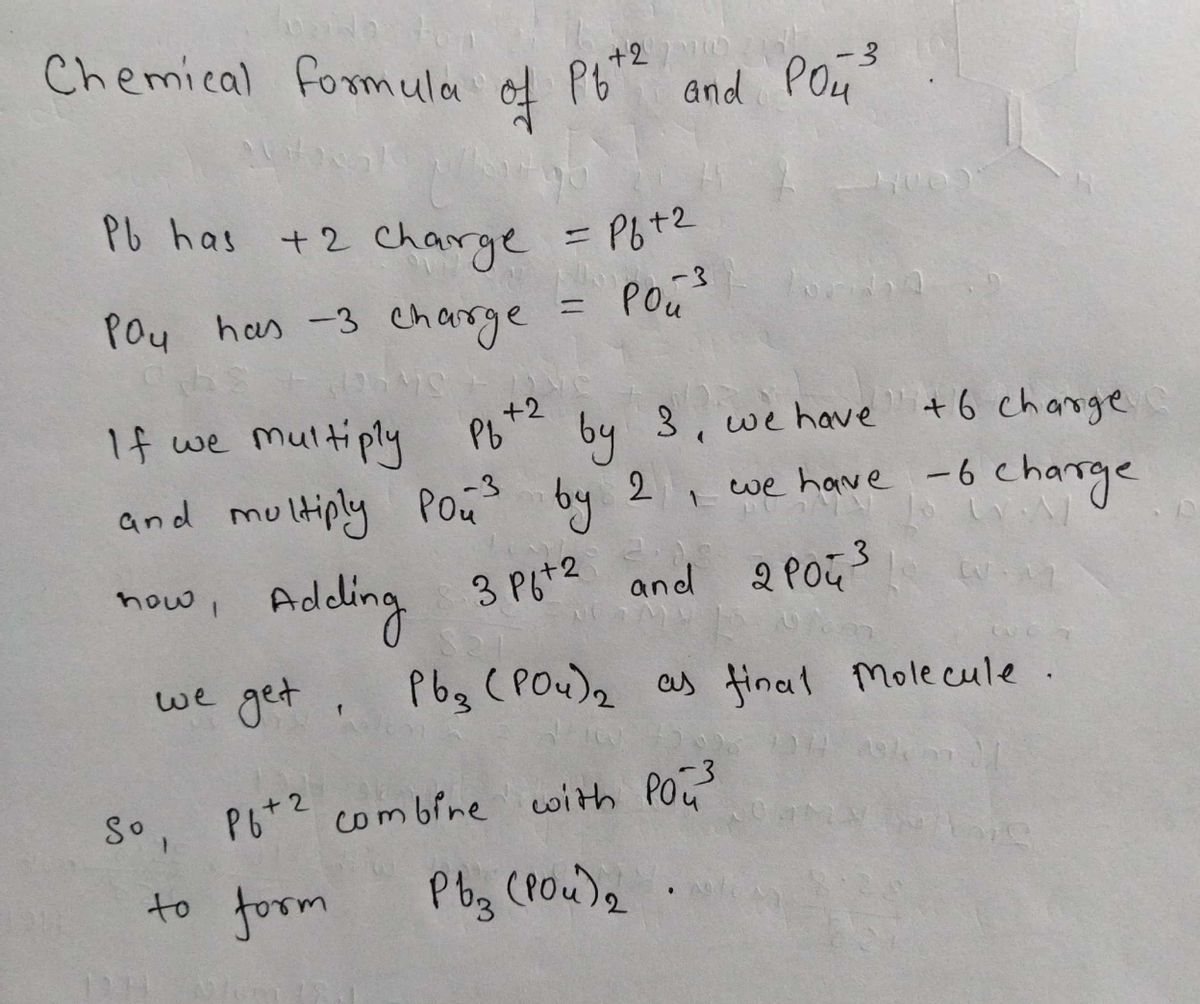 Chemical formula of Pb⁺² and PO₄⁻³ .
Pb has +2 charge = Pb⁺²
PO₄ has -3 charge = PO₄⁻³
If we multiply Pb⁺² by 3, we have +6 charge
and multiply PO₄⁻³ by 2, we have -6 charge
now, Adding 3 Pb⁺² and 2 PO₄⁻³
we get, Pb₃ (PO₄)₂ as final molecule .
So, Pb⁺² combine with PO₄⁻³
to form Pb₃ (PO₄)₂ .